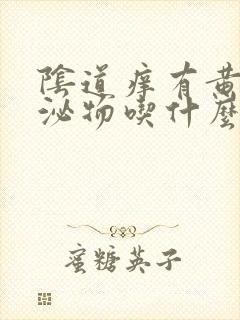 陰道痒有黄
泌物喫什麼
蜜糖英子